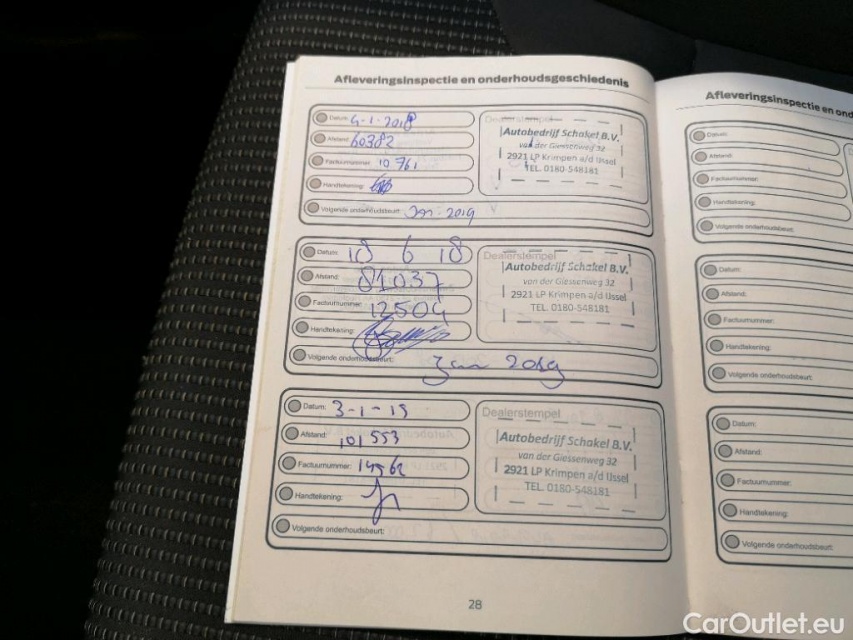 Afleveringsinspectie en onderhoudsgeschiedenis
Datum: 4-1-2018
Afstand: 60382
Factuurnummer: 10761
Handtekening:
Volgende onderhoudsbeurt: Jan 2019
Dealerstempel
Autobedrijf Schakel B.V.
van der Giessenweg 32
2921 LP Krimpen a/d IJssel
TEL. 0180-548181
Datum: 18 6 18
Afstand: 81037
Factuurnummer: 12504
Handtekening:
Volgende onderhoudsbeurt: Jan 2019
Dealerstempel
Autobedrijf Schakel B.V.
van der Giessenweg 32
2921 LP Krimpen a/d IJssel
TEL. 0180-548181
Datum: 3-1-19
Afstand: 101553
Factuurnummer: 14562
Handtekening:
Volgende onderhoudsbeurt:
Dealerstempel
Autobedrijf Schakel B.V.
van der Giessenweg 32
2921 LP Krimpen a/d IJssel
TEL. 0180-548181
28
Afleveringsinspectie en ond
Datum:
Afstand:
Factuurnummer:
Handtekening:
Volgende onderhoudsbeurt:
Datum:
Afstand:
Factuurnummer:
Handtekening:
Volgende onderhoudsbeurt:
Datum:
Afstand:
Factuurnummer:
Handtekening:
Volgende onderhoudsbeurt:
CarOutlet.eu